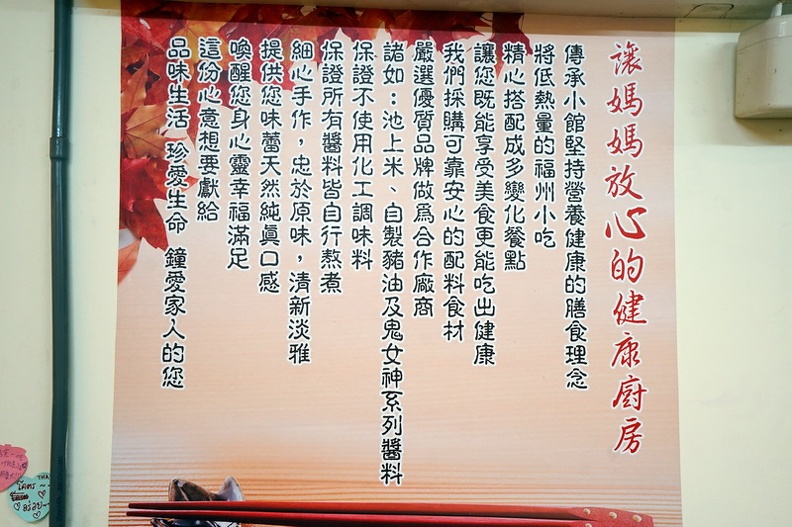 讓媽媽放心的健康廚房
傳承小館堅持營養健康的膳食理念
將低熱量的福州小吃
精心搭配成多變化餐點
讓您既能享受美食更能吃出健康
我們採購可靠安心的配料食材
嚴選優質品牌做為合作廠商
諸如：池上米、自製豬油及鬼女神系列醬料
保證不使用化工調味料
保證所有醬料皆自行熬煮
細心手作，忠於原味，清新淡雅
提供您味蕾天然純真口感
喚醒您身心靈幸福滿足
這份心意想要獻給
品味生活 珍愛生命 鐘愛家人的您